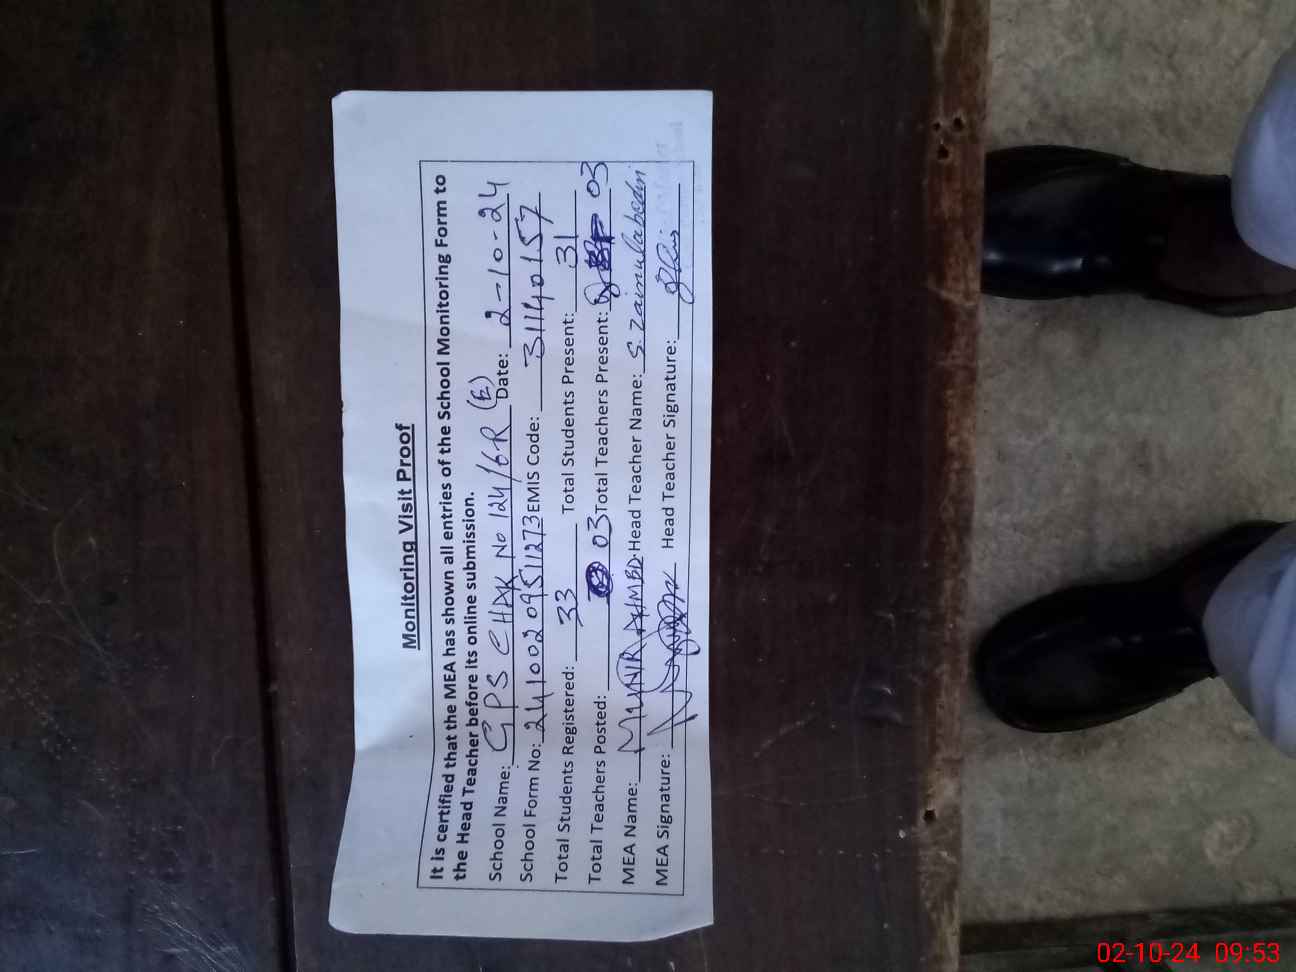 Monitoring Visit Proof
It is certified that the MEA has shown all entries of the School Monitoring Form to
the Head Teacher before its online submission.
School Name: GPS CHAK No 124/6-R (E) Date: 2-10-24
School Form No: 24100209511273 EMIS Code: 31140157
Total Students Registered: 33 Total Students Present: 31
Total Teachers Posted: 03 Total Teachers Present: 03
MEA Name: MUNIR AHMED Head Teacher Name: S. Zainulabedin
MEA Signature: Head Teacher Signature:
02-10-24 09:53